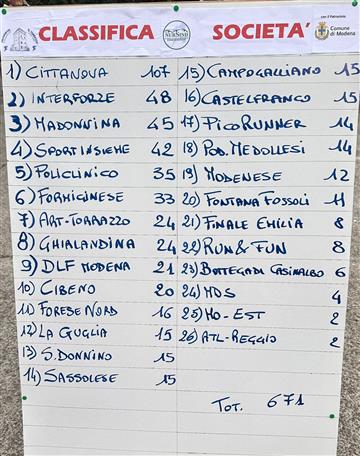 CLASSIFICA NURSIND SOCIETA'
con il Patrocinio
Comune di Modena
1) CITTANOVA 107
2) INTERFORZE 48
3) MADONNINA 45
4) SPORTINSIEME 42
5) POLICLINICO 35
6) FORMIGINESE 33
7) ART-TORRAZZO 24
8) GHIALANDINA 24
9) DLF MODENA 21
10) CIBENO 20
11) FORESE NORD 16
12) LA GUGLIA 15
13) S. DONNINO 15
14) SASSOLESE 15
15) CAMPOGALLIANO 15
16) CASTELFRANCO 15
17) PICO RUNNER 14
18) POD. MEDOLLESI 14
19) MODENESE 12
20) FONTANA FOSSOLI 11
21) FINALE EMILIA 8
22) RUN & FUN 8
23) BOTTEGA DI CASINALBO 6
24) MDS 4
25) MO-EST 2
26) ATL-REGGIO 2
TOT. 671